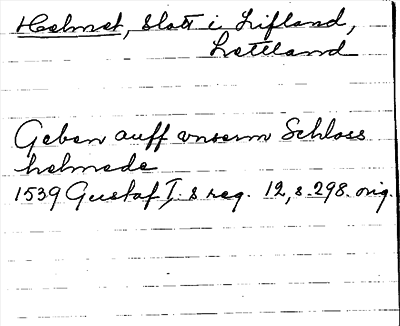 Helmet, slott i Lifland,
Lettland
Geben auff vnserm Schloss
helmede
1539 Gustaf I:s reg. 12, s. 298. orig.